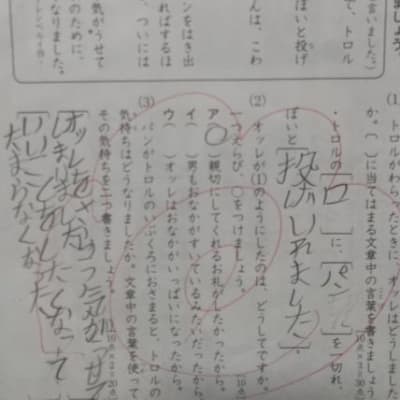 言いました。）
ぽいと投げ
で、トロル
んは、こわ
ンをはき出
ればするほ
、ついには
気がうせて
のために、
なりました。
(1)
トロルがわらったときに、オッレはどうしました
か。（　）に当てはまる文章中の言葉を書きましょう
・トロルの［口］に、［パン］を一切れ、
ぽいと［投げいれました］。
(2)
オッレが(1)のようにしたのは、どうしてですか。
一つえらび、○をつけましょう。
ア（○）親切にしてくれるお礼がしたかったから。
イ（　）男もおなかがすいているみたいだったから。
ウ（　）オッレはおなかがいっぱいになったから。
(3)
パンがトロルのいぶくろにおさまると、トロルの
気持ちはどうなりましたか。文章中の言葉を使って
その気持ちを二つ書きましょう。
オッレをさらった気がうせて
［しまいました］
［いいことをしたくなって
たまらなくなった］